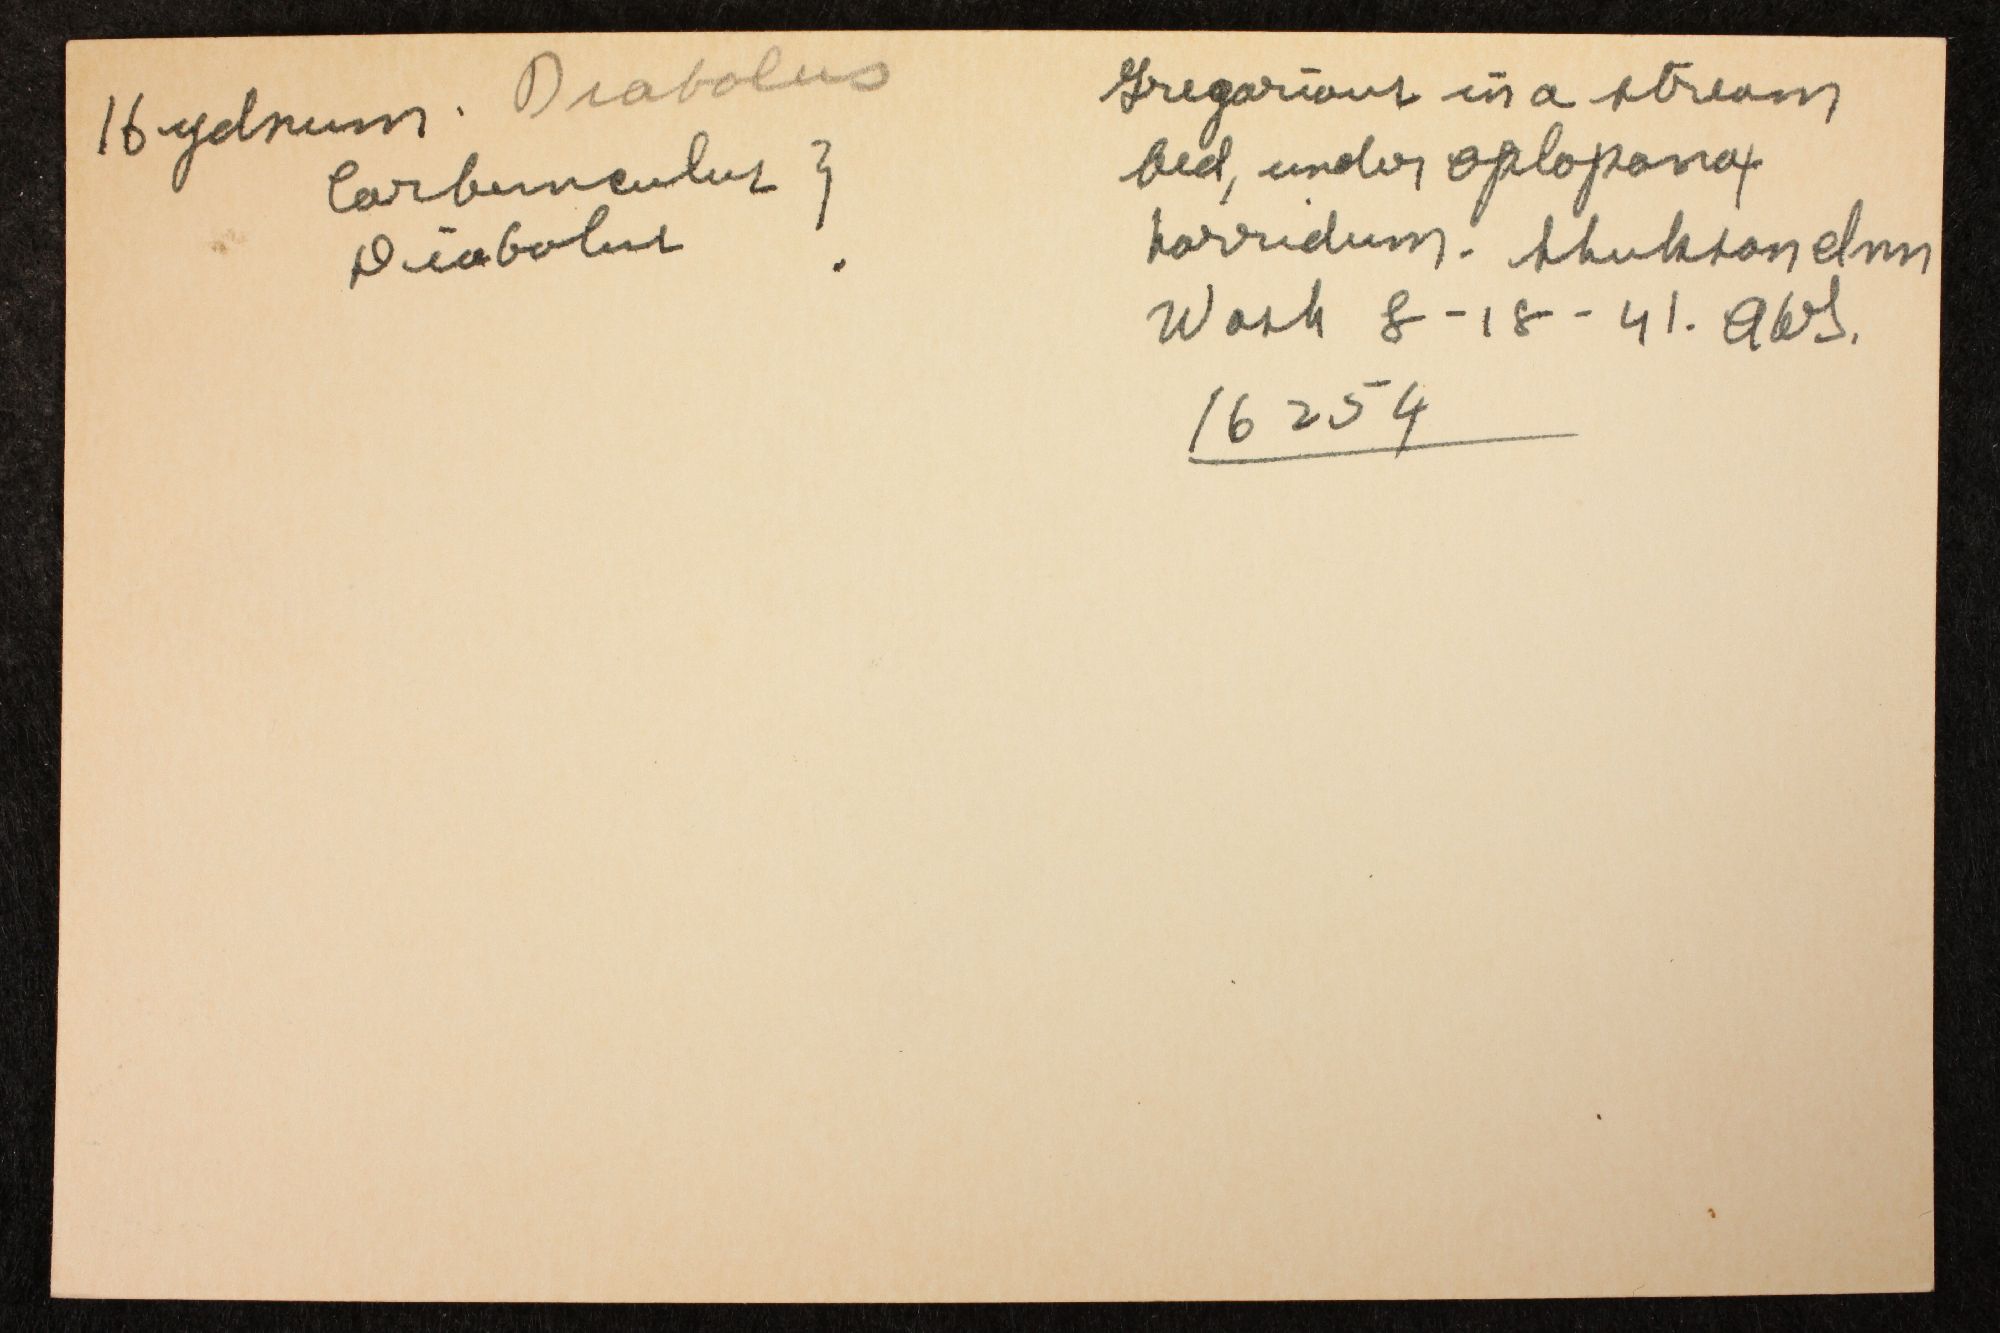 Hydnum. Diabolus
Carbunculus ?
Diabolus
Gregarious in a stream
bed, under oplopanax
horridum. Shuksan Inn
Wash 8-18-41. AHS.
16254